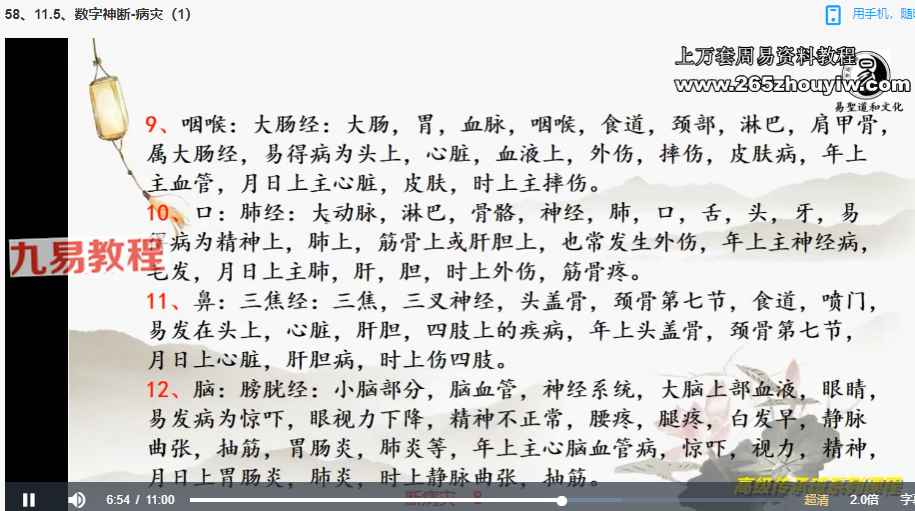 58、11.5、数字神断-病灾（1）
用手机，随
上万套周易资料教程
www.265zhouyiw.com
易聖道和文化
9、咽喉：大肠经：大肠，胃，血脉，咽喉，食道，颈部，淋巴，肩甲骨，
属大肠经，易得病为头上，心脏，血液上，外伤，摔伤，皮肤病，年上
主血管，月日上主心脏，皮肤，时上主摔伤。
10、口：肺经：大动脉，淋巴，骨骼，神经，肺，口，舌，头，牙，易
病为精神上，肺上，筋骨上或肝胆上，也常发生外伤，年上主神经病，
毛发，月日上主肺，肝，胆，时上外伤，筋骨疼。
九易教程
11、鼻：三焦经：三焦，三叉神经，头盖骨，颈骨第七节，食道，喷门，
易发在头上，心脏，肝胆，四肢上的疾病，年上头盖骨，颈骨第七节，
月日上心脏，肝胆病，时上伤四肢。
12、脑：膀胱经：小脑部分，脑血管，神经系统，大脑上部血液，眼睛，
易发病为惊吓，眼视力下降，精神不正常，腰疼，腿疼，白发早，静脉
曲张，抽筋，胃肠炎，肺炎等，年上主心脑血管病，惊吓，视力，精神，
月日上胃肠炎，肺炎，时上静脉曲张，抽筋。
断病灾 8
高级传承班系列课程
6:54 / 11:00
超清 2.0倍 字